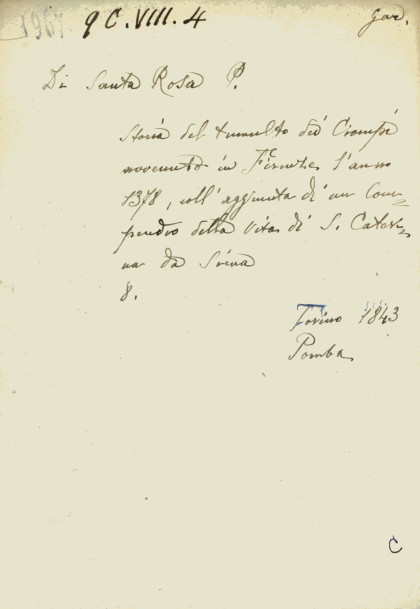 1967 9 C. VIII. 4 Gar.
Di Santa Rosa P.
Storia del tumulto dei Ciompi
avvenuto in Firenze l'anno
1378, coll'aggiunta di un Com-
pendio della Vita di S. Cateri-
na da Siena
8.
Torino 1843
Pomba
C